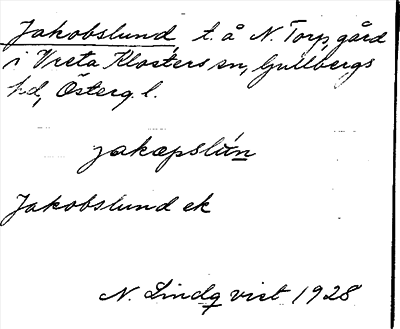 Jakobslund, t. å N. Torp, gård
i Vreta Klosters sn, Gullbergs
hd, Österg. l.
jakɔpslún
Jakobslund ek
N. Lindqvist 1928